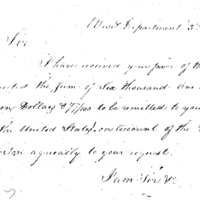 War Department
Sir
I have received your favor of the
the sum of Six thousand One
Dollars & 77/100 to be remitted to you
the United States, on account of the
agreeably to your request.
I am Sir &c